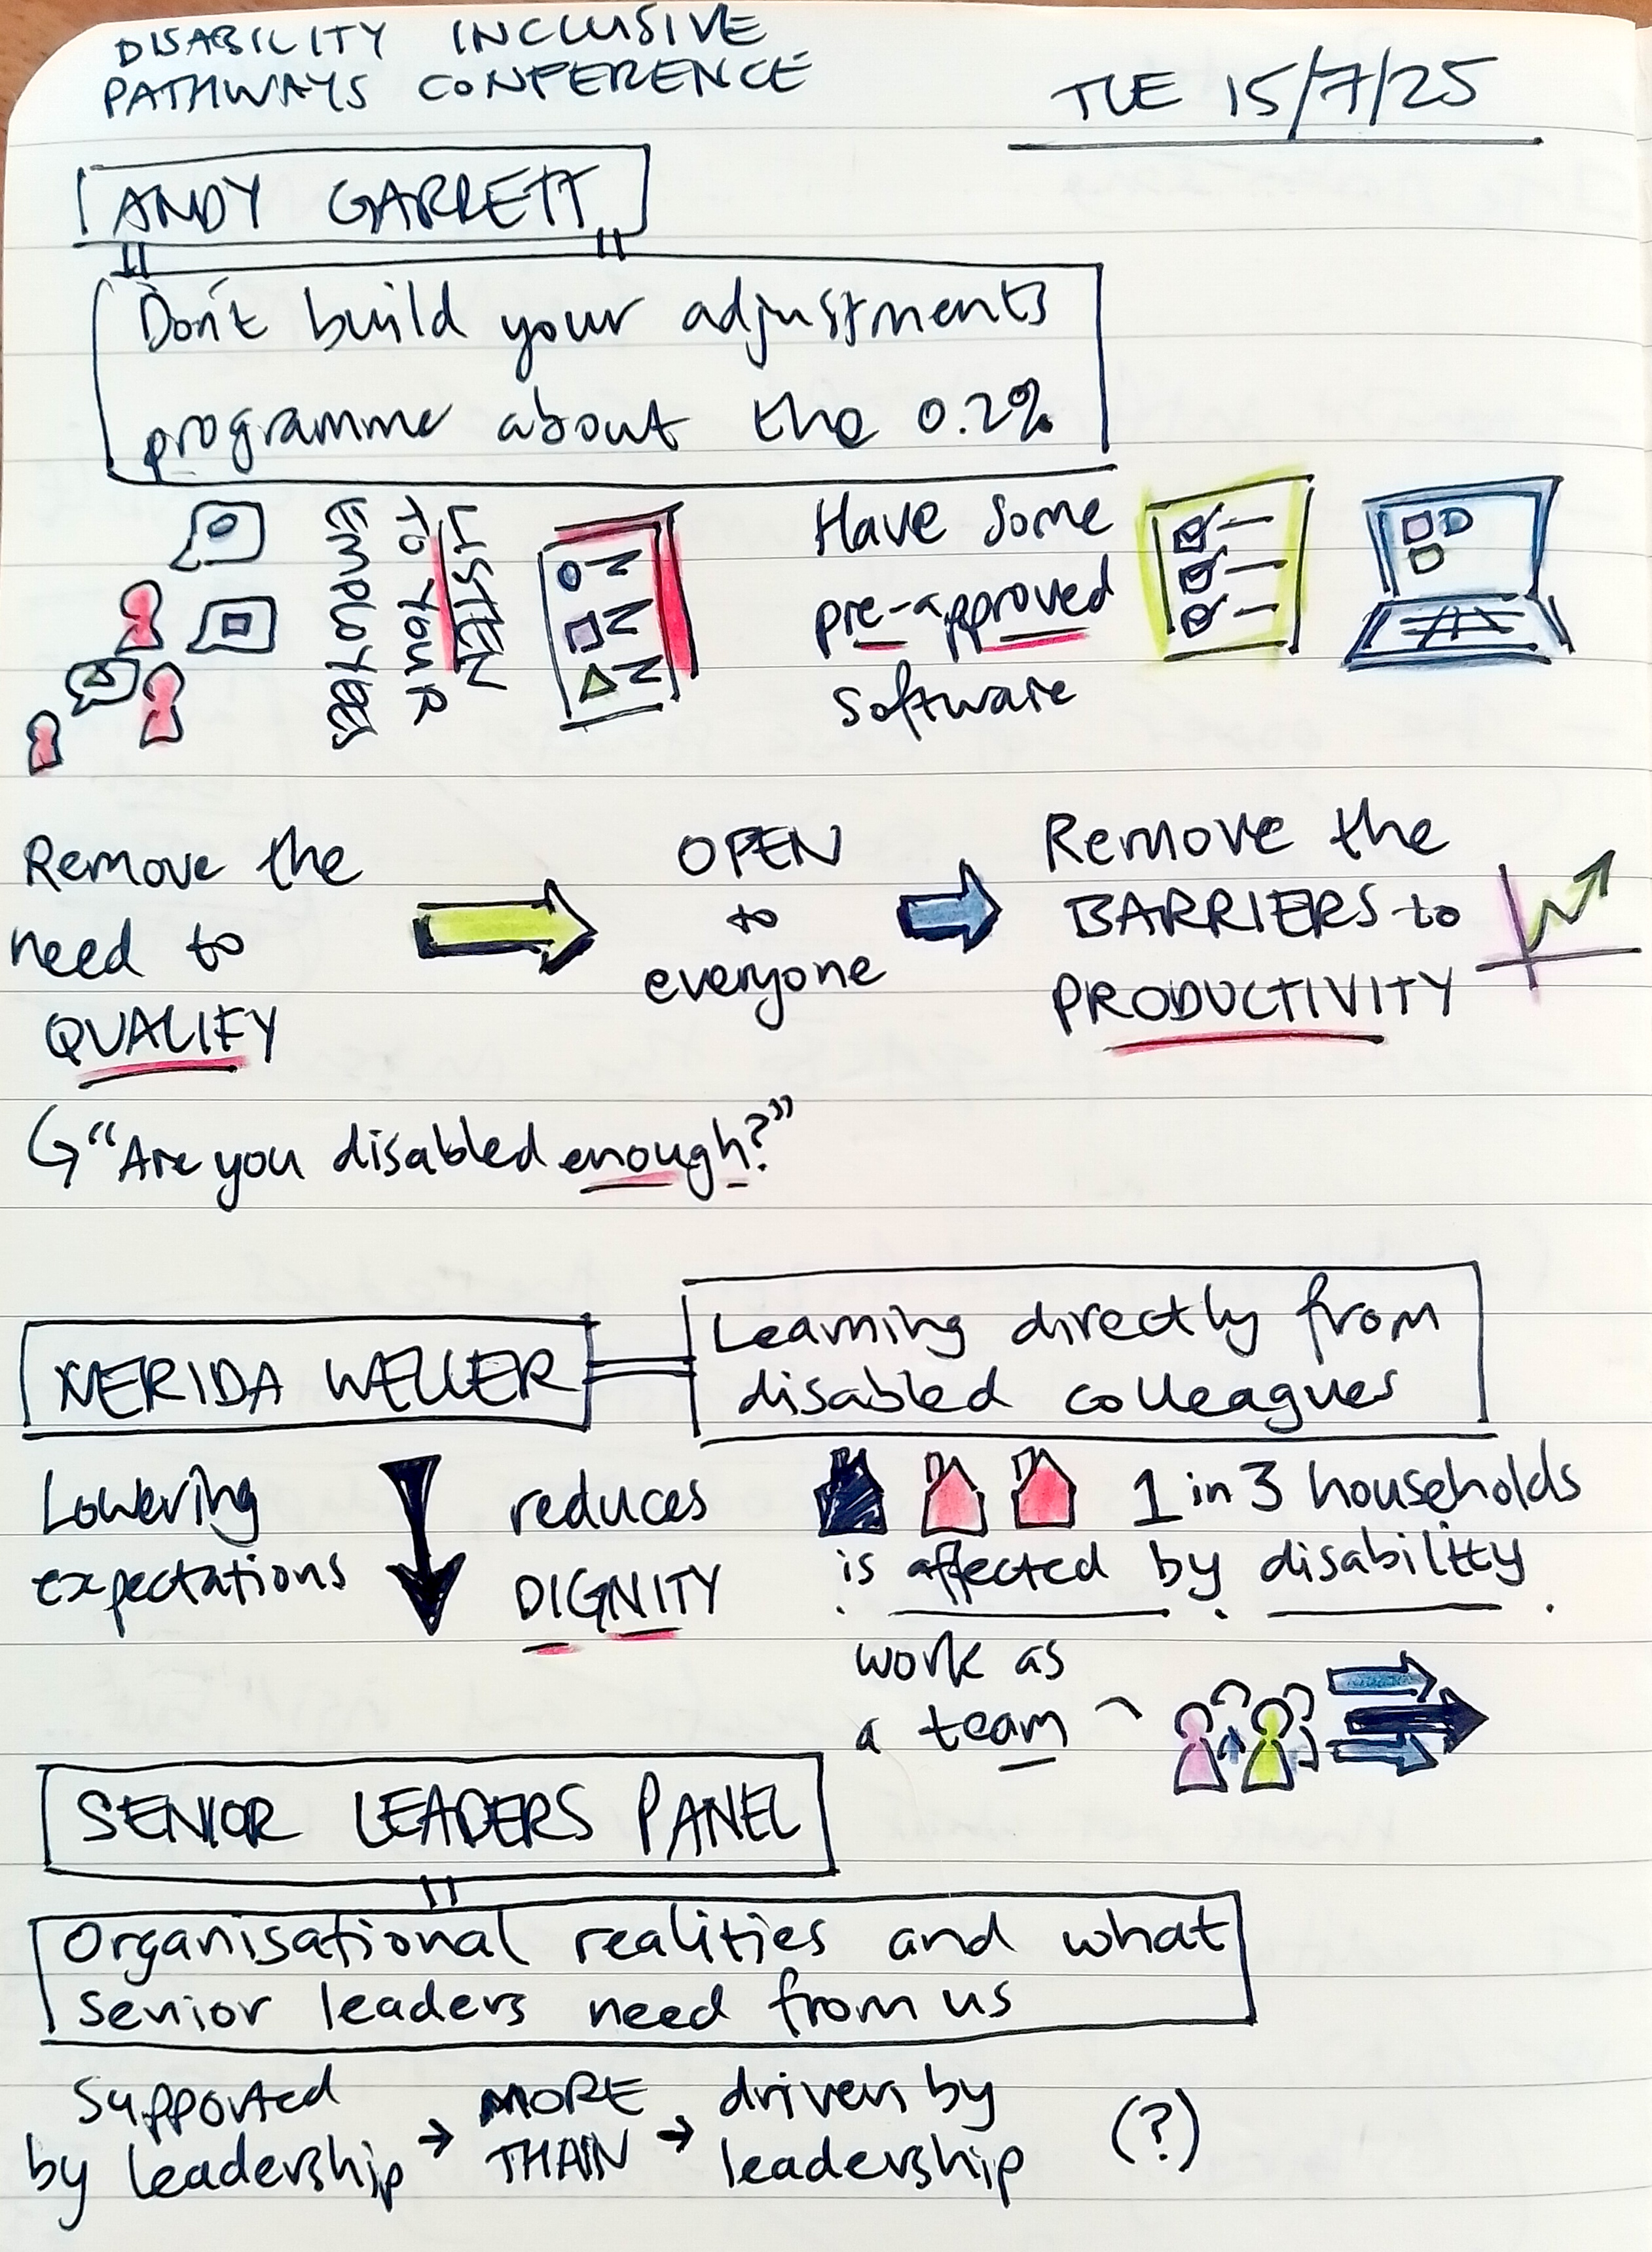 DISABILITY INCLUSIVE
PATHWAYS CONFERENCE
TUE 15/7/25
ANDY GARRETT
Don't build your adjustments
programme about the 0.2%
LISTEN
TO YOUR
EMPLOYEES
Have some
pre-approved
software
Remove the
need to
QUALIFY
OPEN
to
everyone
Remove the
BARRIERS to
PRODUCTIVITY
"Are you disabled enough?"
NERIDA WELLER
Learning directly from
disabled colleagues
Lowering
expectations
reduces
DIGNITY
1 in 3 households
is affected by disability
work as
a team
SENIOR LEADERS PANEL
Organisational realities and what
senior leaders need from us
Supported
by leadership
MORE
THAN
driven by
leadership
(?)